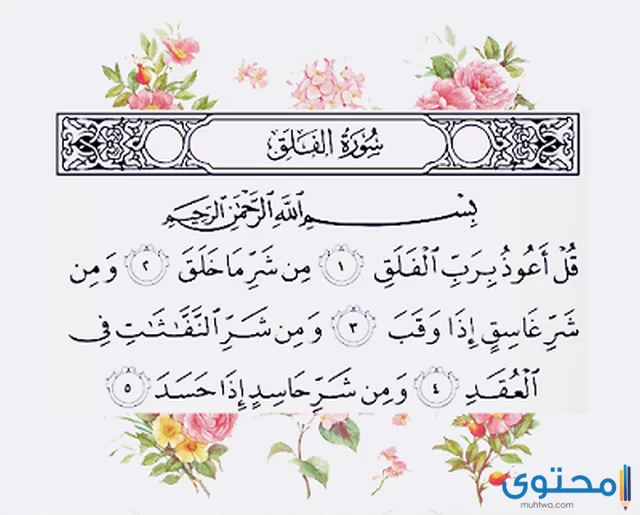 سُورَةُ الفَلَقِ
بِسْمِ اللَّهِ الرَّحْمَٰنِ الرَّحِيمِ
قُلْ أَعُوذُ بِرَبِّ ٱلْفَلَقِ ١ مِن شَرِّ مَا خَلَقَ ٢ وَمِن
شَرِّ غَاسِقٍ إِذَا وَقَبَ ٣ وَمِن شَرِّ ٱلنَّفَّٰثَٰتِ فِي
ٱلْعُقَدِ ٤ وَمِن شَرِّ حَاسِدٍ إِذَا حَسَدَ ٥
محتوى
muhtwa.com